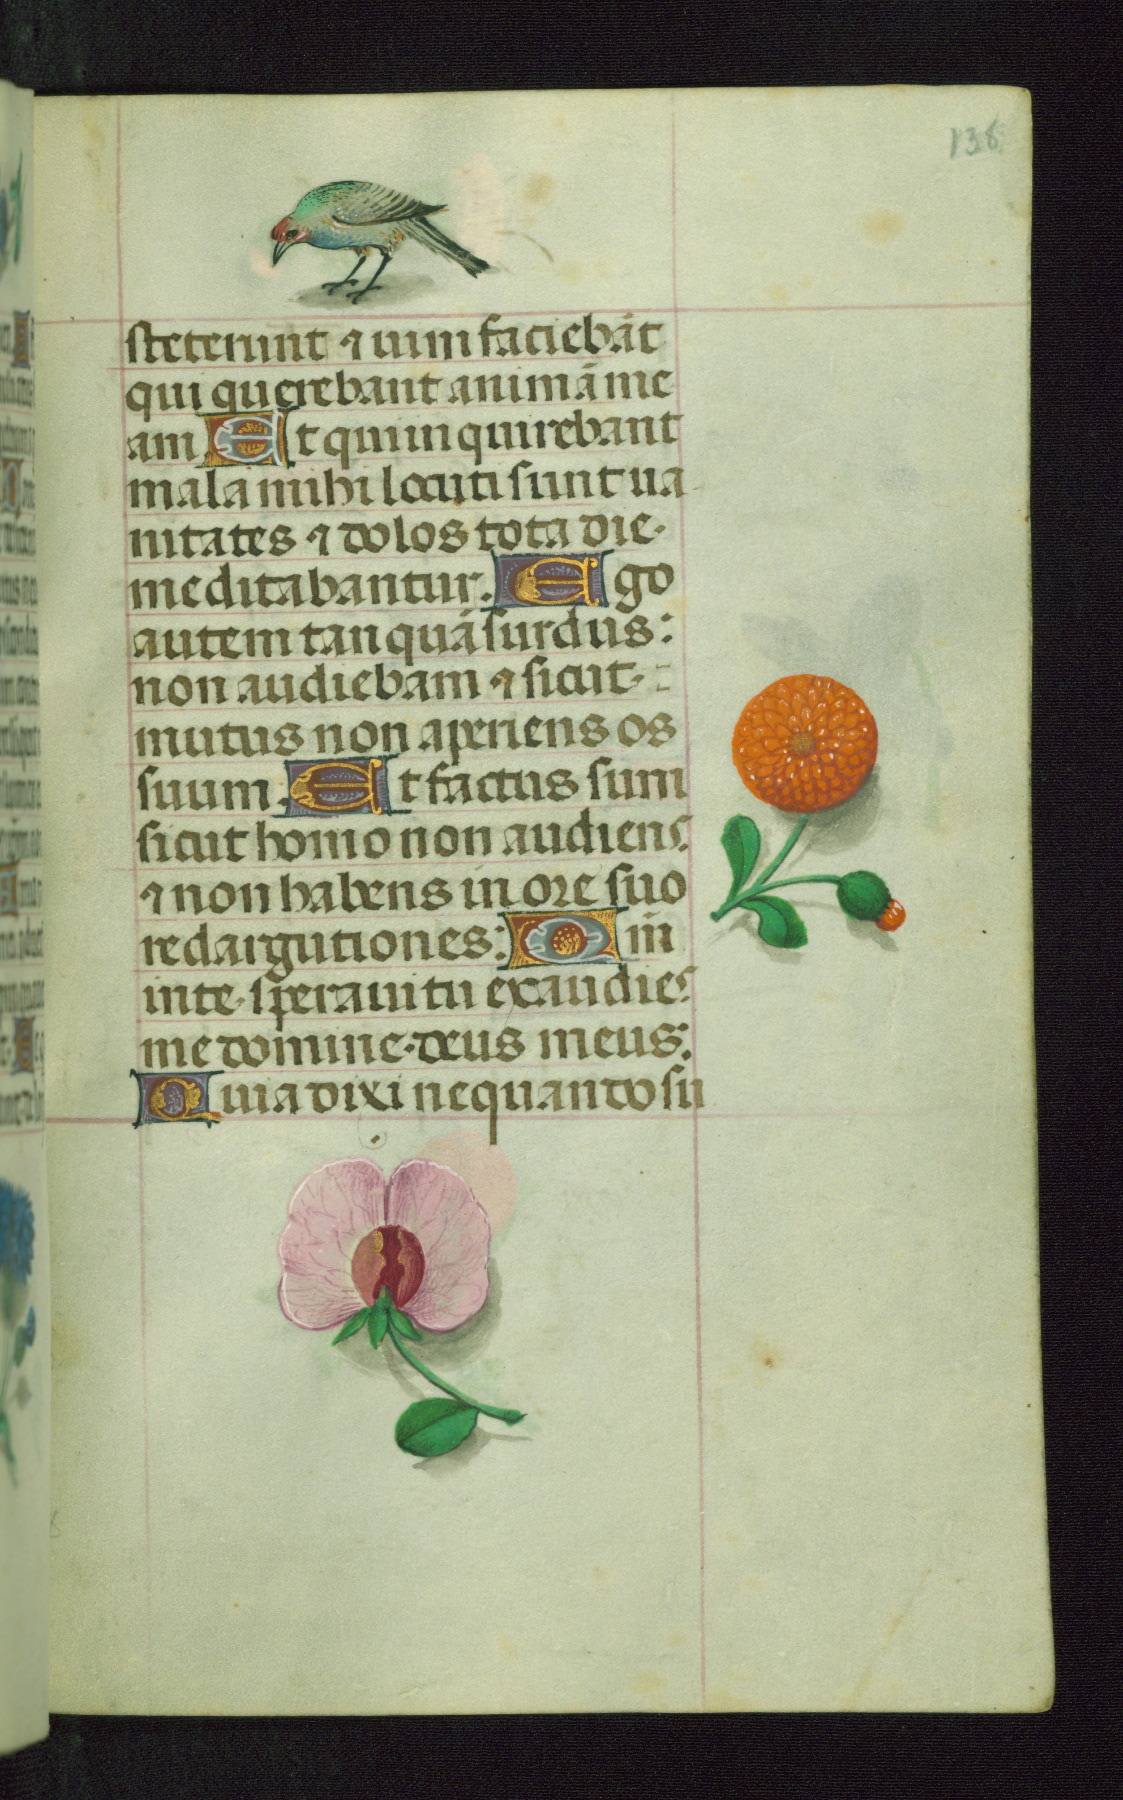 138
steterunt ⁊ uim faciebāt
qui querebant animā me
am Et qui inquirebant
mala mihi locuti sunt ua
nitates ⁊ dolos tota die
meditabantur. Ego
autem tanquā surdus:
non audiebam ⁊ sicut
mutus non aperiens os
suum. Et factus sum
sicut homo non audiens
⁊ non habens in ore suo
redargutiones: Qm̄
in te speraui tu exaudies
me domine deus meus:
Quia dixi nequando su